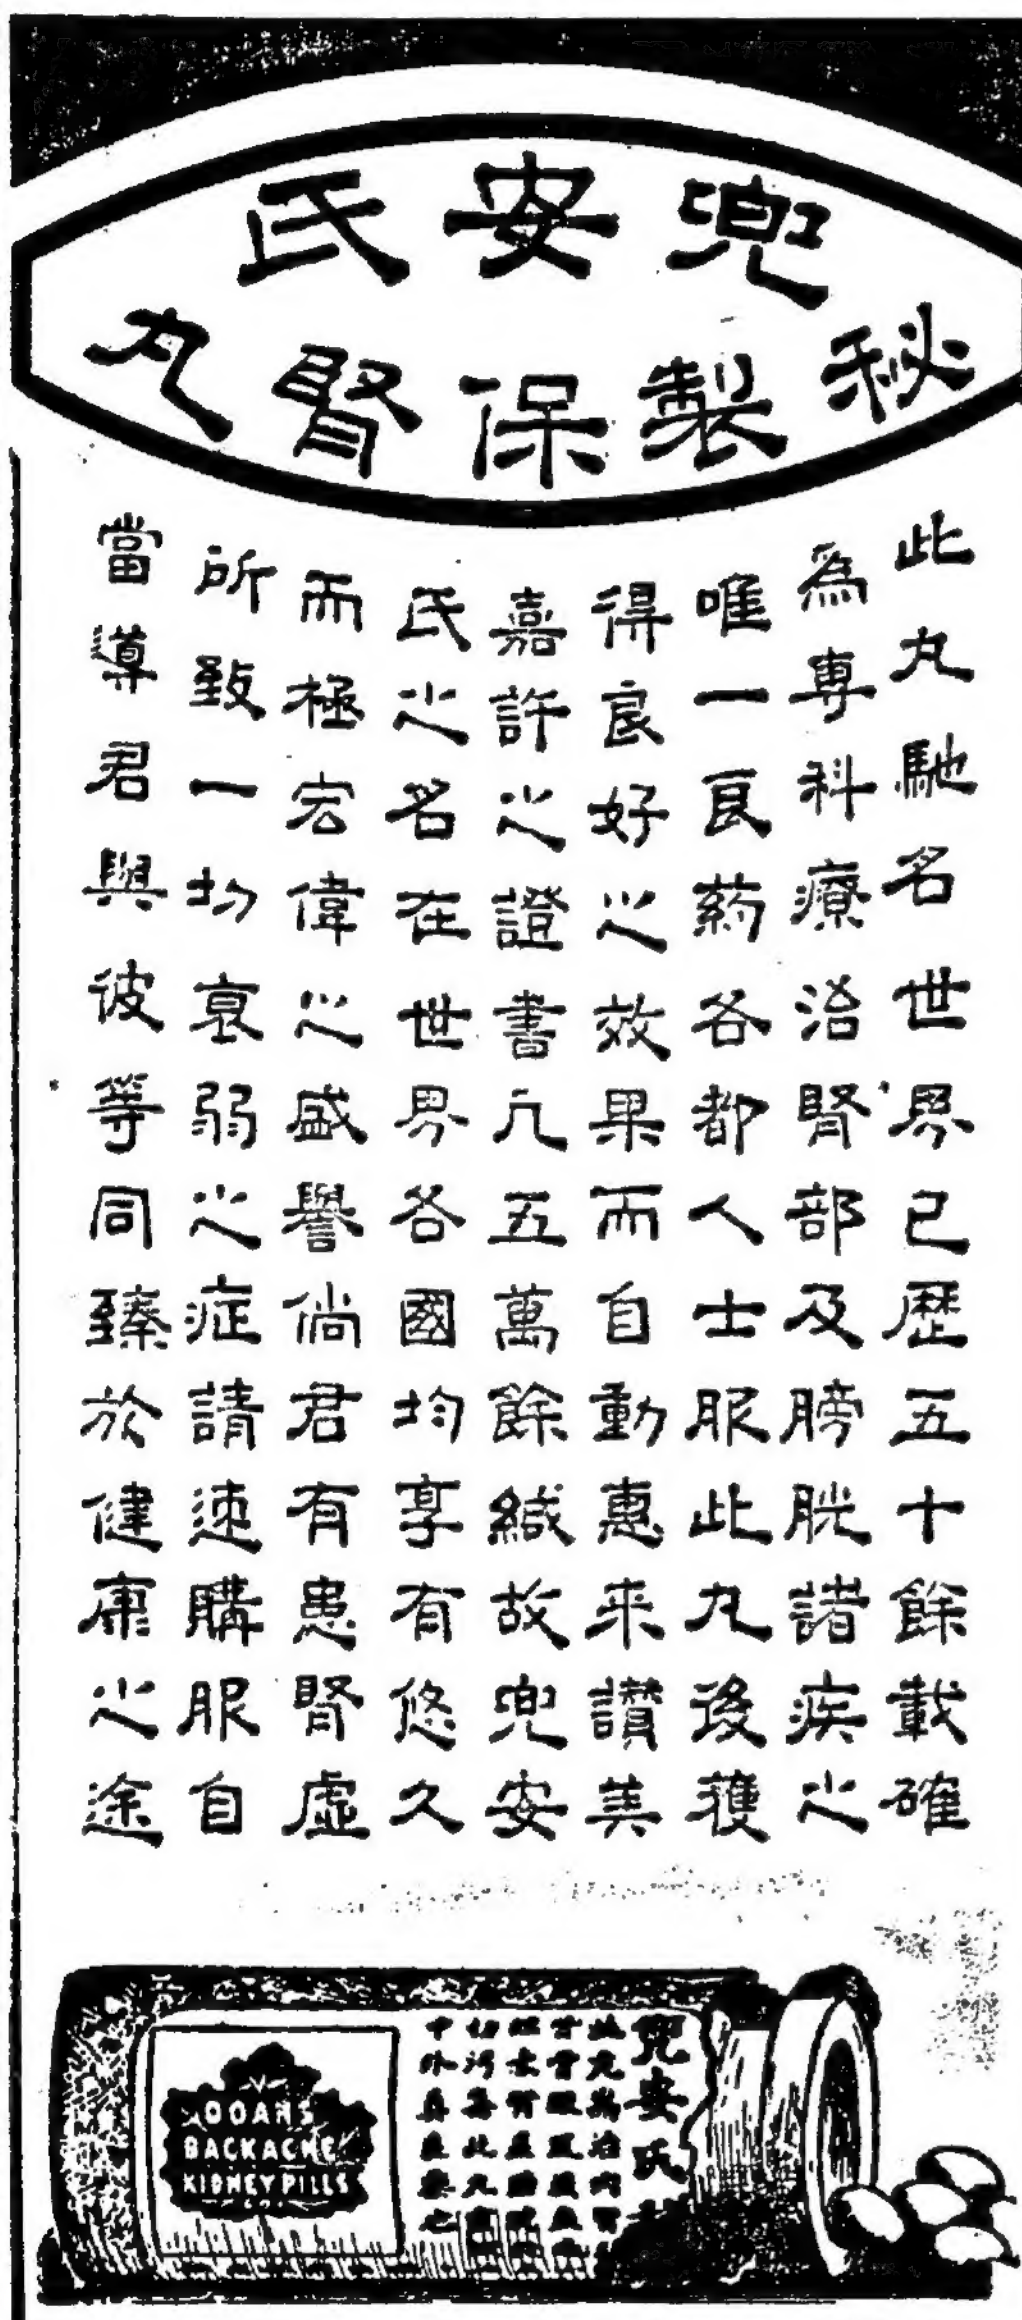 兜安氏
秘製保腎丸
此丸馳名世界已歷五十餘載確
為專科療治腎部及膀胱諸疾之
唯一良藥各都人士服此丸後獲
得良好之效果而自動惠来讚美
嘉許之證書凢五萬餘緘故兜安
氏之名在世界各國均享有悠久
而極宏偉之盛譽倘君有患腎虛
所致一切衰弱之症請速購服自
當導君與彼等同臻於健康之途
兜安氏
DOANS
BACKACHE
KIDNEY PILLS